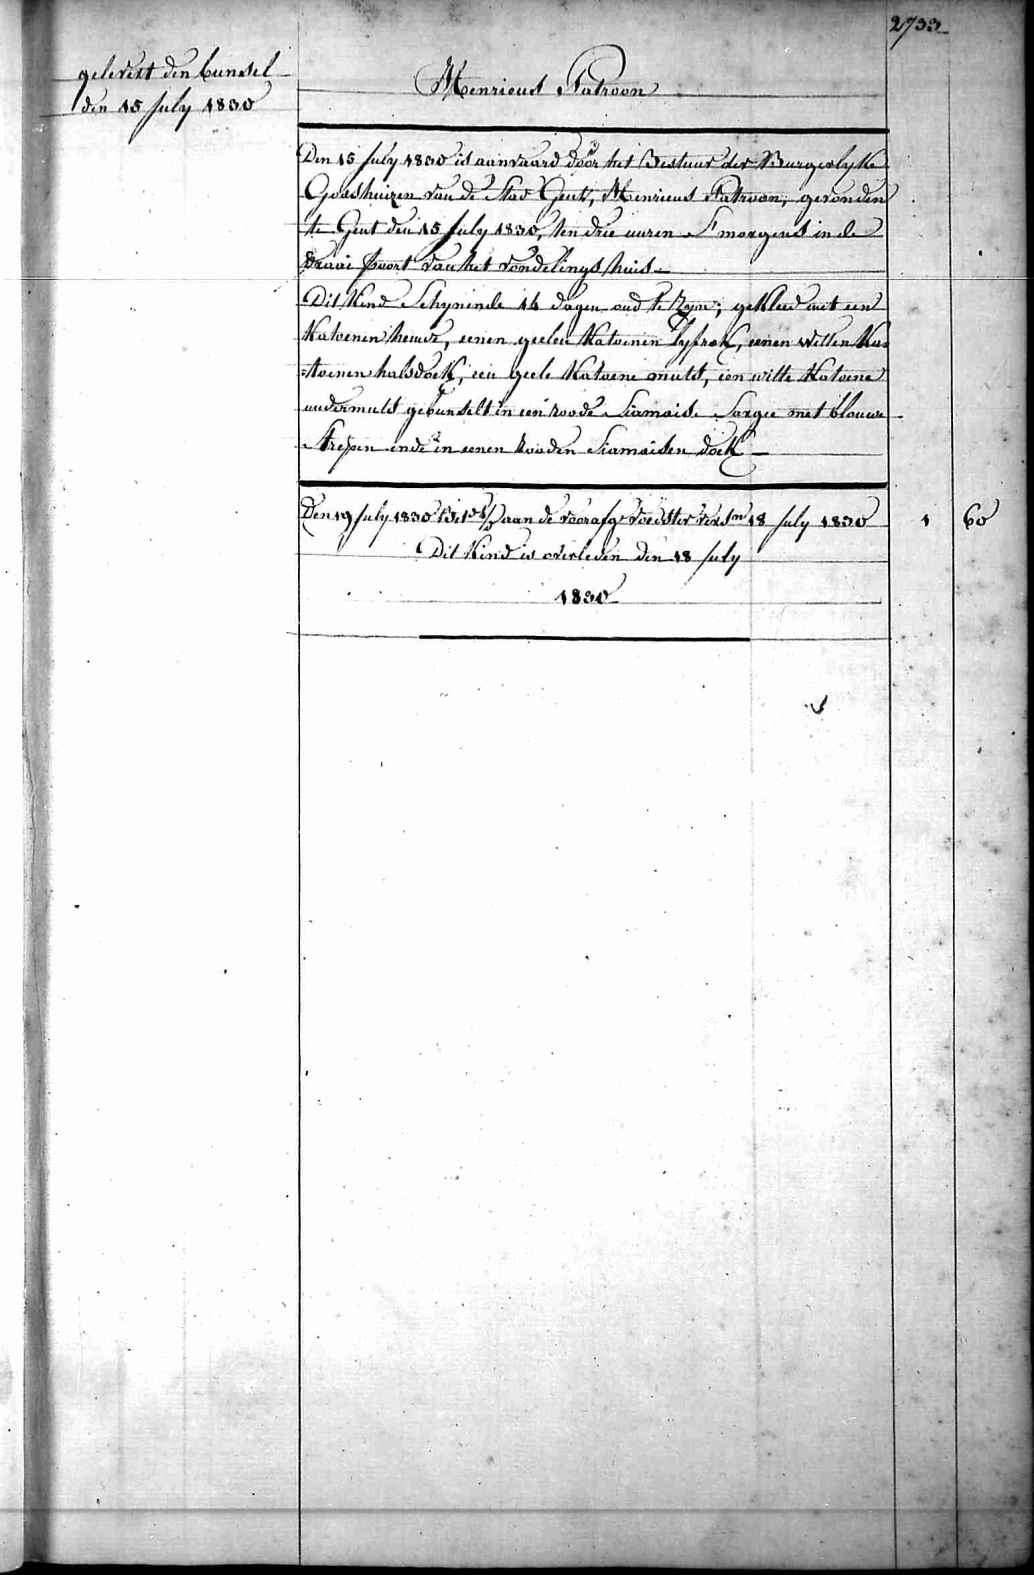 2733
gelevert den bunsel
den 15 July 1830
Henricus Patroon
Den 15 July 1830 is aanvaard door het Bestuur der Burgerlyke
Godshuizen van de Stad Gent, Henricus Patroon, gevonden
te Gent den 15 July 1830, ten drie uuren S'morgens in de
draai poort van het vondelings huis
Dit Kind Schynende 14 dagen oud te Zyn; gekleed met een
Katoenen hemde, eenen geelen Katoenen Lyfrok, eenen witten Ka=
=toenen halsdoek, een geele Katoene muts, een witte Katoene
undermuts gebunselt in een roode Siamoise Sargie met blouwe
Strepen ende in eenen Rooden Siamoisen doek
Den 19 July 1830 aan de voorafge voedster 18 July 1830 1 60
Dit Kind is overleden den 18 July
1830